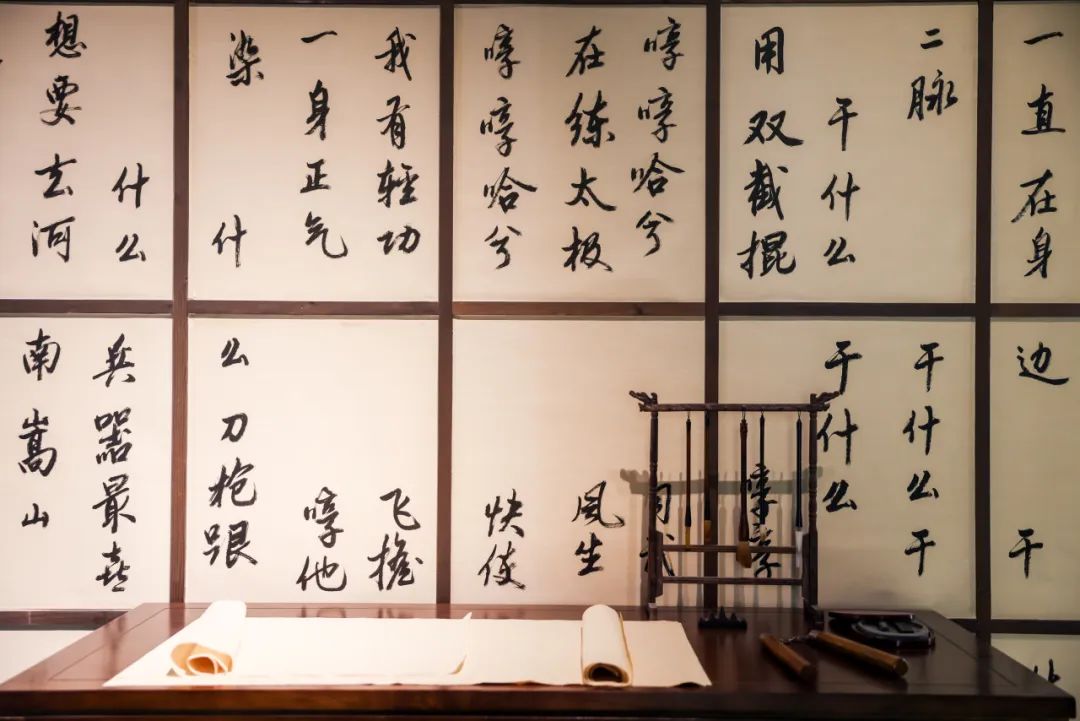 一直在身边 干
二脉 干什么干
干什么 干什么
用双截棍 哼哼
哼哼哈兮
在练太极 风生
哼哼哈兮 快使
我有輕功 飞檐
一身正气 哼他
染 什么刀枪跟
什么 兵器最喜
想要去河南嵩山